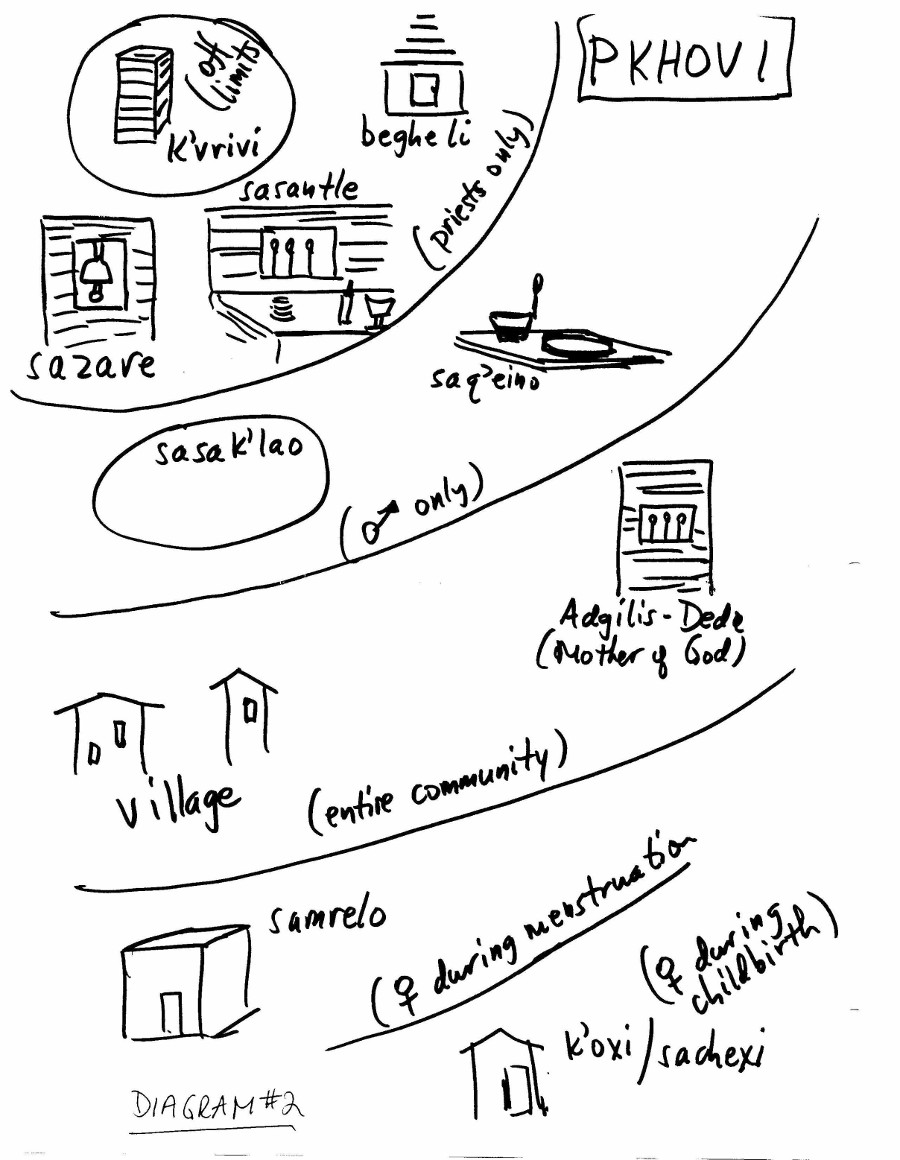 PKHOVI
(off
limits)
k'vrivi
begheli
(priests only)
sasantle
sazare
saq'eino
sasak'lao
(♂ only)
Adgilis-Deda
(Mother of God)
village
(entire community)
samrelo
(♀ during menstruation
(♀ during
childbirth)
k'oxi/sachexi
DIAGRAM #2